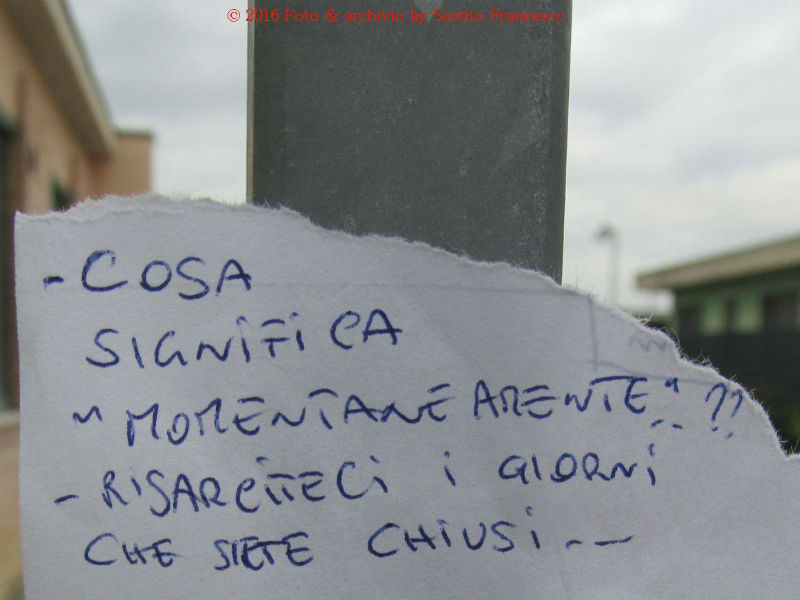 © 2016 Foto & archivio by Sestito Francesco
- COSA
SIGNIFICA
"MOMENTANEAMENTE"..??
- RISARCITECI I GIORNI
CHE SIETE CHIUSI...